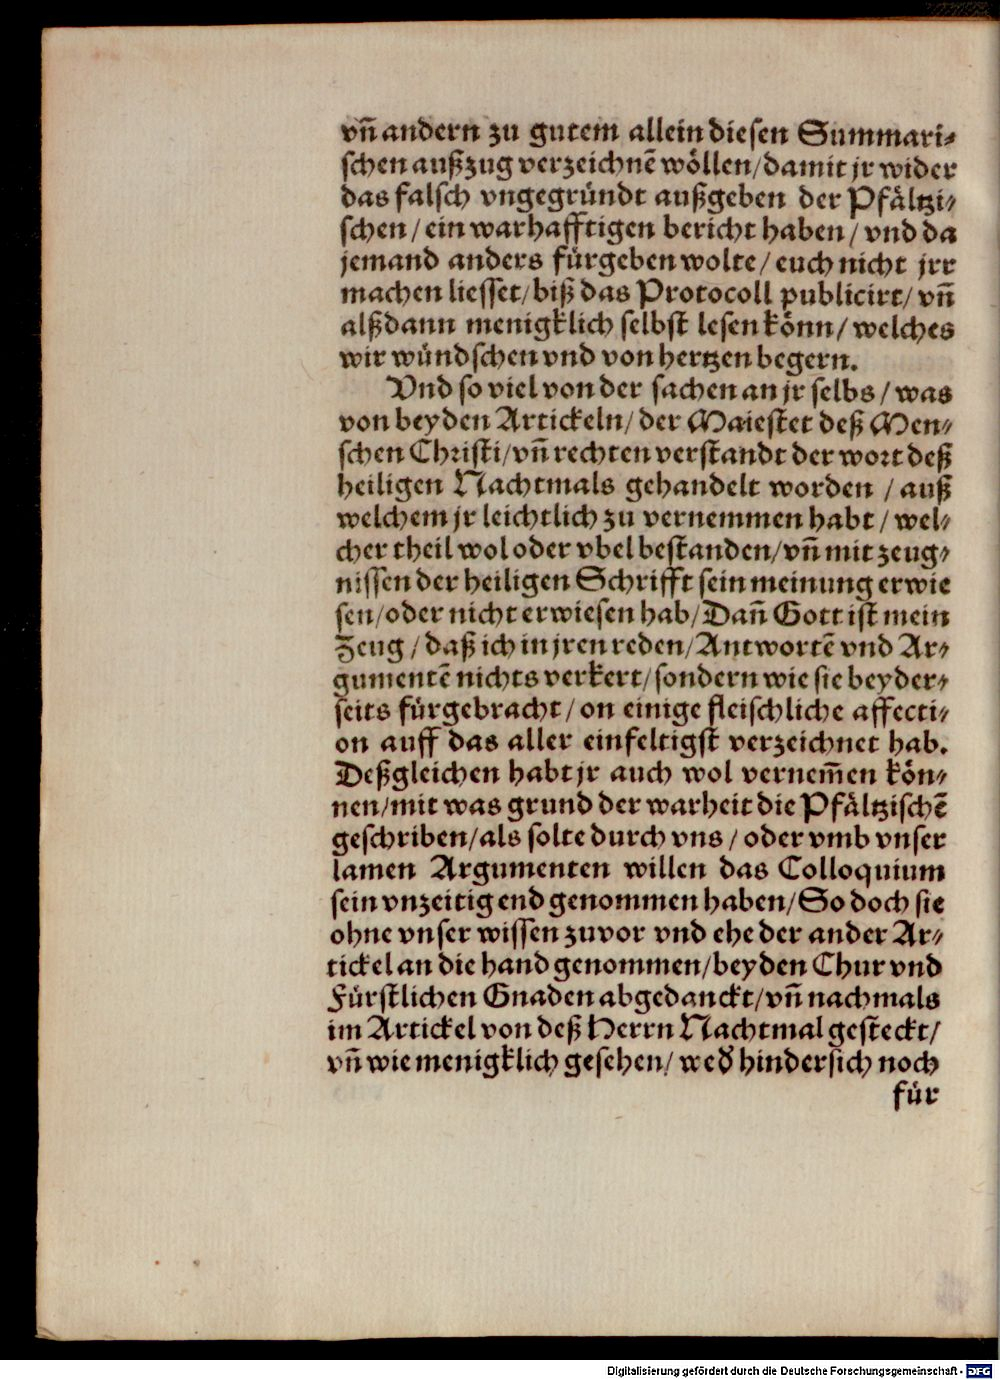 vñ andern zu gutem allein diesen Summari⸗
schen außzug verzeichnẽ wöllen/ damit jr wider
das falsch vngegründt außgeben der Pfältzi⸗
schen/ ein warhafftigen bericht haben/ vnd da
jemand anders fürgeben wolte/ euch nicht jrr
machen liesset/ biß das Protocoll publicirt/ vñ
alßdann menigklich selbst lesen könn/ welches
wir wündschen vnd von hertzen begern.
Vnd so viel von der sachen an jr selbs/ was
von beyden Artickeln/ der Maiestet deß Men⸗
schen Christi/ vñ rechten verstandt der wort deß
heiligen Nachtmals gehandelt worden / auß
welchem jr leichtlich zu vernemmen habt/ wel⸗
cher theil wol oder vbel bestanden/ vñ mit zeug⸗
nissen der heiligen Schrifft sein meinung erwie
sen/ oder nicht erwiesen hab/ Dañ Gott ist mein
Zeug / daß ich in jren reden/ Antwortẽ vnd Ar⸗
gumentẽ nichts verkert/ sondern wie sie beyder⸗
seits fürgebracht/ on einige fleischliche affecti⸗
on auff das aller einfeltigst verzeichnet hab.
Deßgleichen habt jr auch wol vernem̃en kön⸗
nen/ mit was grund der warheit die Pfältzischẽ
geschriben/ als solte durch vns / oder vmb vnser
lamen Argumenten willen das Colloquium
sein vnzeitig end genommen haben/ So doch sie
ohne vnser wissen zuvor vnd ehe der ander Ar⸗
tickel an die hand genommen/ beyden Chur vnd
Fürstlichen Gnaden abgedanckt/ vñ nachmals
im Artickel von deß Herrn Nachtmal gesteckt/
vñ wie menigklich gesehen/ wed̕ hindersich noch
für
Digitalisierung gefördert durch die Deutsche Forschungsgemeinschaft - DFG